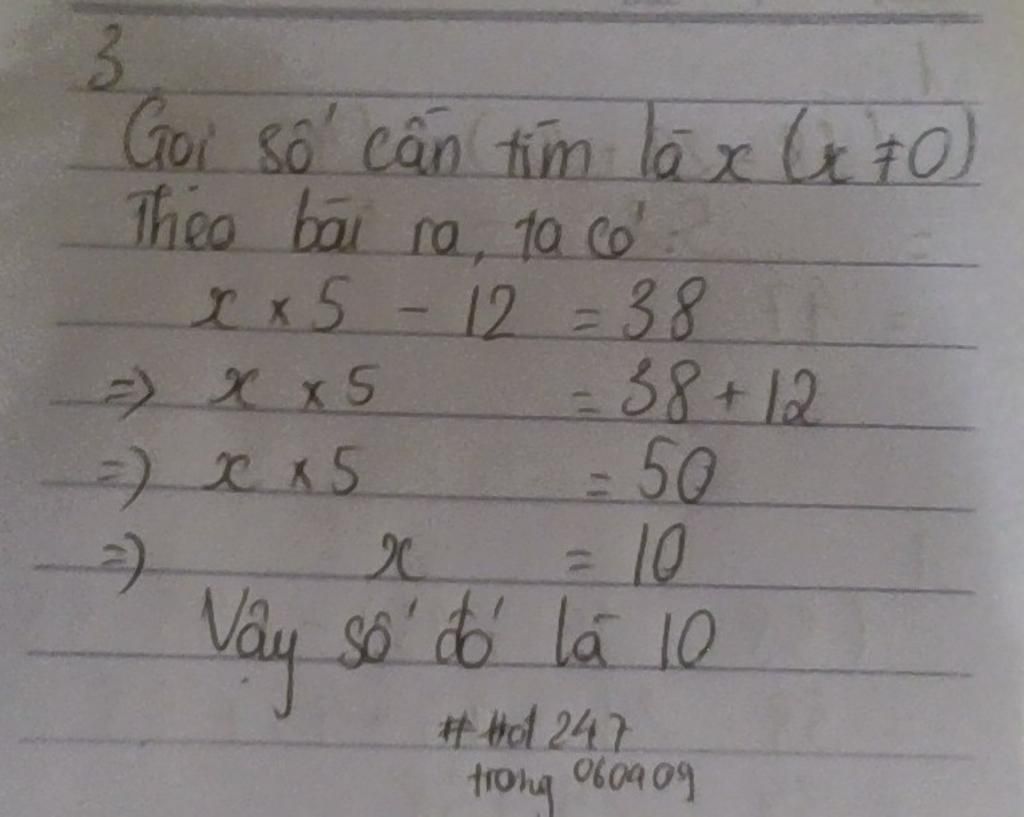 3
Gọi số cần tìm là x (x ≠ 0)
Theo bài ra, ta có:
x × 5 - 12 = 38
=> x × 5 = 38 + 12
=> x × 5 = 50
=> x = 10
Vậy số đó là 10
# Hd 247
trong 060909